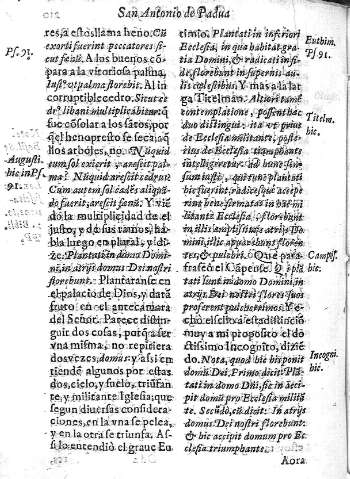 San Antonio de Padua
res, a estos llama heno. Cũ
exorti fuerint peccatores si-
cut fœnũ. A los buenos cõ
para a la vitoriosa palma,
Iustꝰ vt palma florebit. Al in
corruptible cedro. Sicut ce-
drꝰ libani multiplicabitur. q̃
fue cõsolar a los satos, por-
q̃ el heno presto se seca, aq̃
llos arboles, no. Nũquid
cum sol exierit, arescit pal-
ma? Nũquid arescit cedrus?
Cum autem sol cadẽs aliquã
do fuerit, arescit fœnũ. Y viẽ
dò la multiplicidad de el
justo, y de sus ramos, ha-
bla luego en plural, y di-
ze: Plantati in domo Domi-
ni, in atrijs domus Dei nostri
florebunt. Plantaranse en
el palacio de Dios, y darã
fruto en el antecamara
del Señor. Parece distin-
guir dos cosas, porq̃ a ser
vna misma, no repitiera
dos vezes, domus: y assi en
tiende algunos por estas
dos, cielo, y suelo, triũfan
te, y militante Iglesia; que
segun diuersas considera
ciones, en la vna se pelea,
y en la otra se triunfa. As-
si lo entendiò el graue Eu
timio. Plantati in inferiori
Ecclesia, in qua habitat gra-
tia Domini, & radicati in fi-
de, florebunt in supernis au-
lis cœlestibus. Y mas a la lar
ga Titelman. Altiori tamẽ
contemplatione, possent hæc
duo distingui: ita vt prius
de Ecclesia militanti, poste-
rius de Ecclesia triumphante
intelligeretur: ad hunc sen-
sum iusti, qui tunc plantati
hic fuerunt, radicesque accipe
rint bene firmatas in hac mi
litante Ecclesia, florebunt
in illis amplissimis atrijs Do
mini, illic apparebunt floren-
tes, & pulchri. Que para-
fraseò el Capense. Qui plã
tati sunt in domo Domini, in
atrijs Dei nostri flores suos
proferent pulcherrimos. Y e-
chò el sello a esta distinciõ
muy a mi proposito el do
ctissimo Incognito, dizien
do. Nota, quod hic bis ponit
domũ Dei. Primo dicit: Plã
tati in domo Dñi, sic in acci-
pit domũ pro Ecclesia milita
te. Secũdò, cũ dicit: In atrijs
domus Dei nostri florebunt:
& hic accipit domum pro Ec
clesia triumphante.
Aora
Ps. 91.
Augusti.
hic in Ps.
91.
Euthim.
Ps 91.
Titelm.
hic.
Campẽs.
hic.
Incogni.
hic.